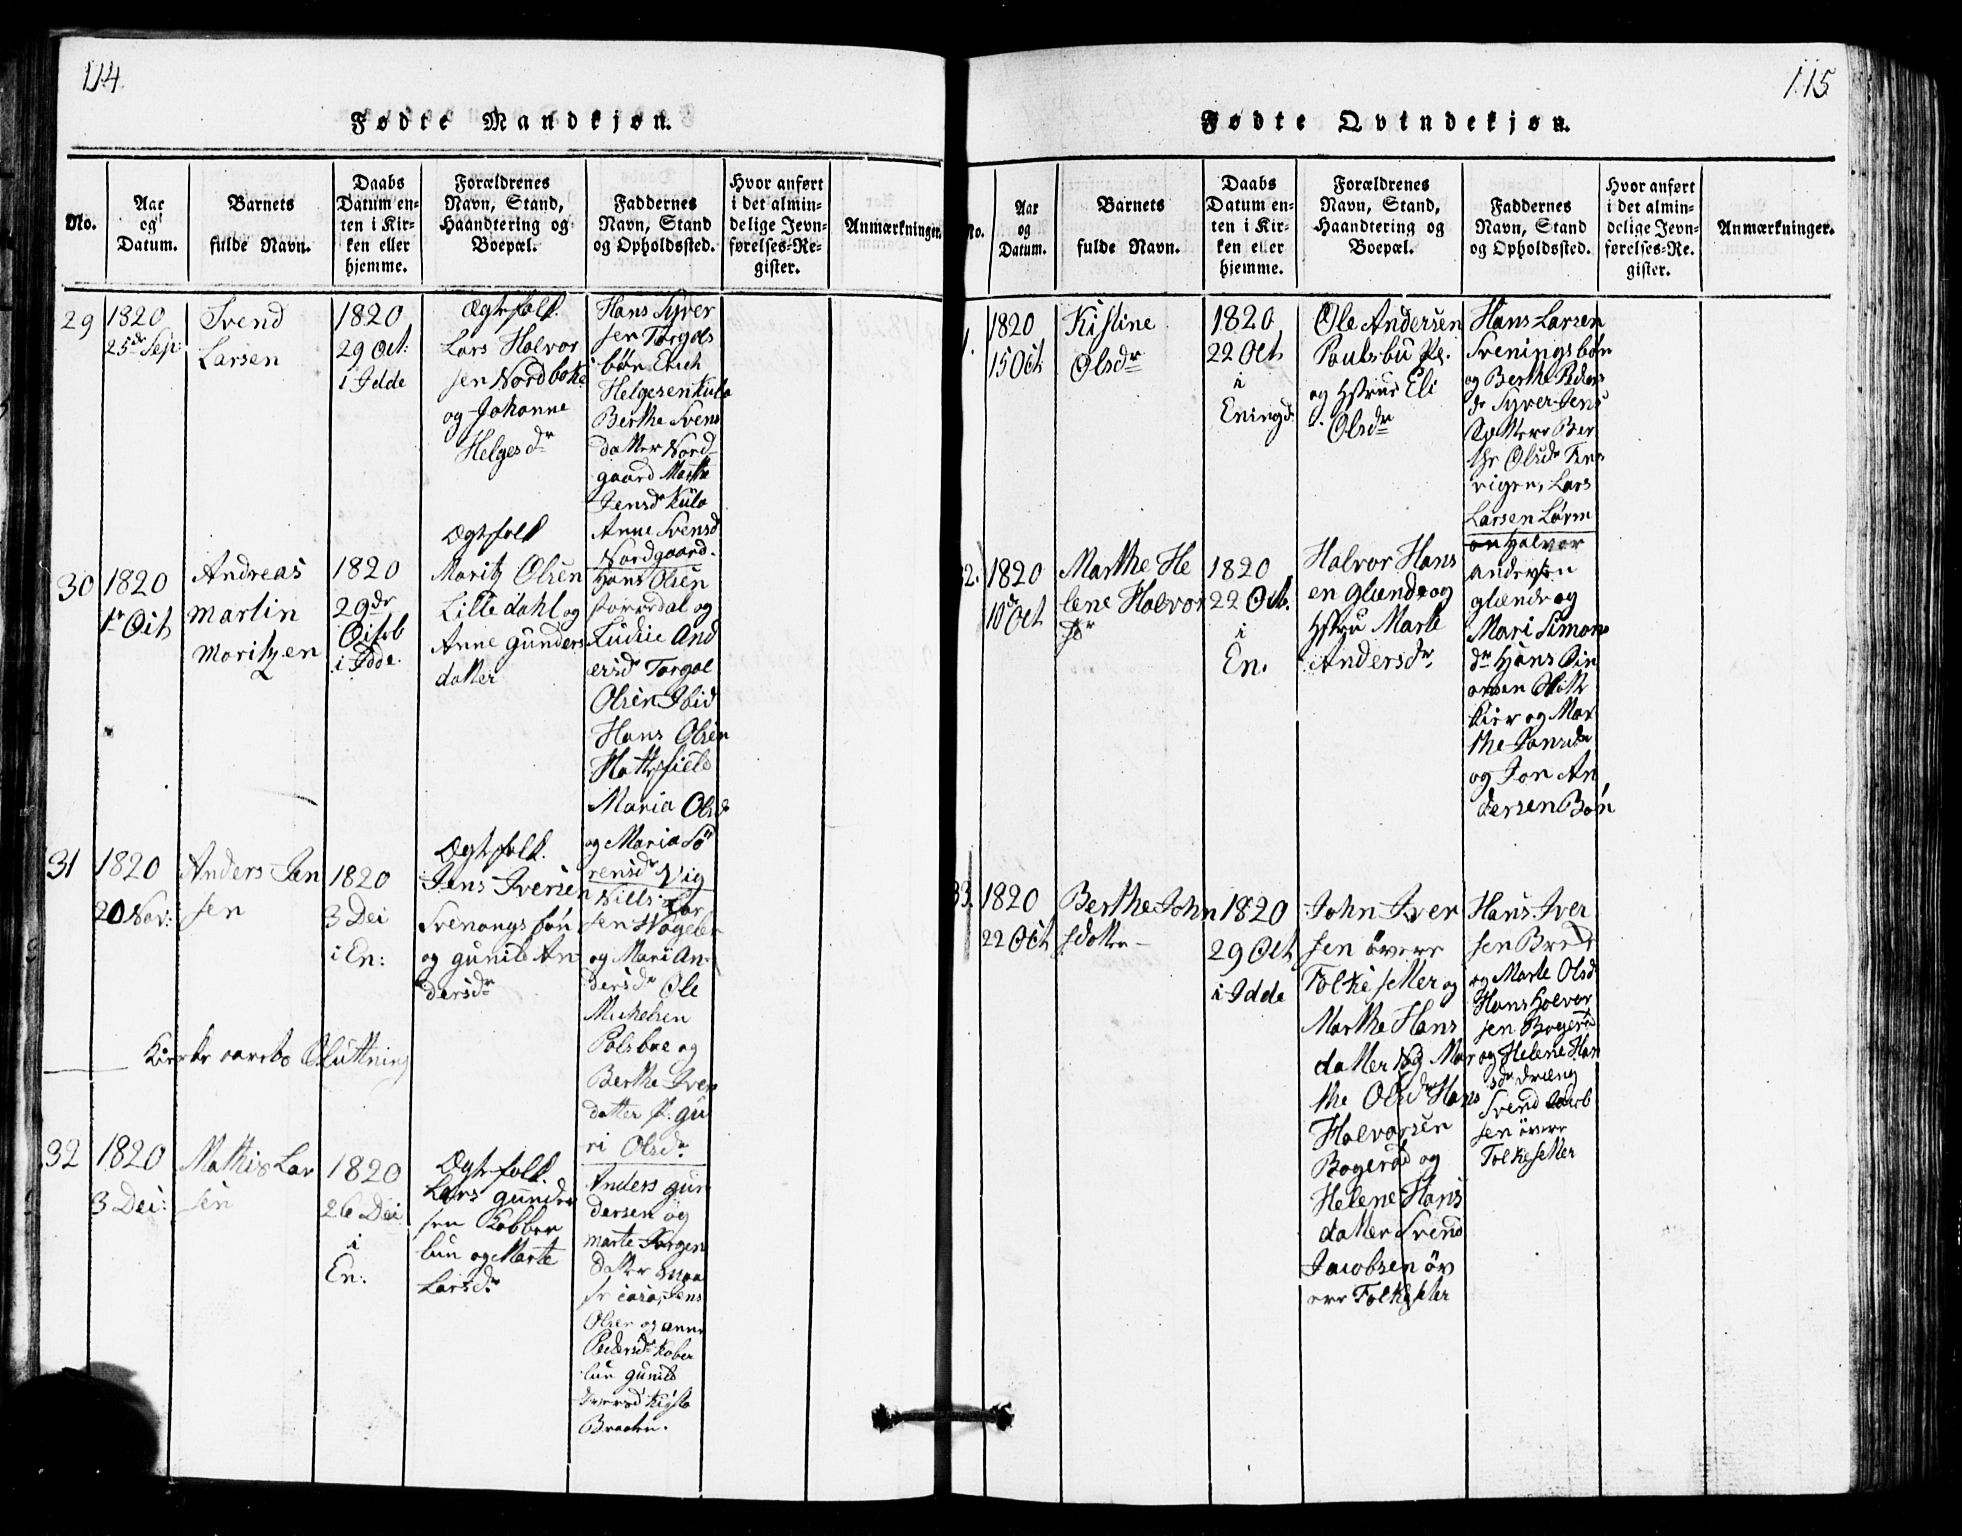 114.
Fødte Mandkjøn.
No.
Aar og Datum.
Barnets fulde Navn.
Daabs Datum enten i Kirken eller hjemme.
Forældrenes Navn, Stand, Haandtering og Boepæl.
Faddernes Navn, Stand og Opholdssted.
Hvor anført i det almindelige Jevnførelses-Register.
Anmærkninger.
29
1820
25de Sep:
Svend
Larsen
1820
29 Oct:
i Idde
Ægtefolk
Lars Halvor
sen Nordboke
og Johanne
Helgesdr
Hans Syver
sen Torgals
bøn Erich
Helgesen Kula
Berthe Svens
datter Nord
gaard Marthe
Jensdr Kula
Anne Svensd
Nordgaard.
30
1820
1r Oct
Andreas
Martin
Moritzen
1820
29dr
Octob
i Idde.
Ægtefolk
Moritz Olsen
Lille dahl og
Anne Gunders
datter
Hans Olsen
og
And
ersdr Torgal
Olsen Ibid
Hans Olsen
Maria Olsd
og Maria Sö
rensdr Vig
31
1820
20 Nov:
Anders Jen
sen
1820
3 Dec
i En:
Ægtefolk.
Jens Iversen
Svenongsbøn
og Gunild An
dersdr
Nills Lar
sen
og Mari An
dersdr Ole
Michelsen
Polsboe og
Berthe Iver
datter
ri Olsdr
Kierke aarets Sluttning
32
1820
3 Dec:
Mathis Lar
sen
1820
26 Dec
i
En:
Ægtefolk.
Lars Gunder
sen Kobber
lun og Marte
Larsdr
Anders Gun
dersen og
Marte Jørgen
datter
Jens
Olsen og Anne
Pedersdr Kober
lun Gunild
Braaten.
115
Fødte Qvindekjøn.
No.
Aar og Datum.
Barnets fulde Navn.
Daabs Datum enten i Kirken eller hjemme.
Forældrenes Navn, Stand, Haandtering og Boepæl.
Faddernes Navn, Stand og Opholdssted.
Hvor anført i det almindelige Jevnførelses-Re. gister.
Anmærkninger.
1820
15 Oct
Kistine
Olsdr
1820
22 Oct
i
Eningd.
Ole Andersen
Poulsbu Pl.
og Hstrue Eli
Olsdr
Hans Larsen
Sveningsbøn
og Berthe Peders
dr Syver Jens
Ber
the Olsdr
Lars
Larsen
Halvor
2.
1820
10de Oct
Marthe He
lene Halvor
sdr
1820
22 Octb.
i
En.
Halvor Hans
en Glende og
Hstru Marte
Andersdr.
Andersen
Glende og
Mari Simons
dr Hans
og Mar
the Jansdr
og Jon An
dersen Bøn
33.
1820
22 Oct
Berthe John
sdatter
1820
29 Oct
i Idde
John Iver
sen övere
Folkesetter og
Marthe Hans
datter og Mar
the Olsdr Hans
Halvorsen
Bogerød og
Helene Hans
datter Svend
Jacobsen öv
ere Folkesetter
Hans Iver
sen Brede
og Marte Olsd
Hans Halvor
sen Bogerød
og Helene Han
sdr
Svend Jacob
sen övere
Folkesetter